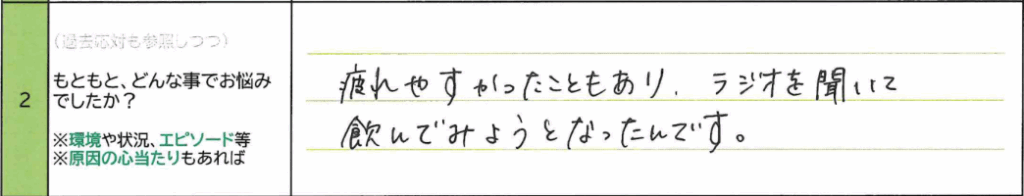 2
(過去応対も参照しつつ)
もともと、どんな事でお悩み
でしたか？
※環境や状況、エピソード等
※原因の心当たりもあれば
疲れやすかったこともあり、ラジオを聞いて
飲んでみようとなったんです。